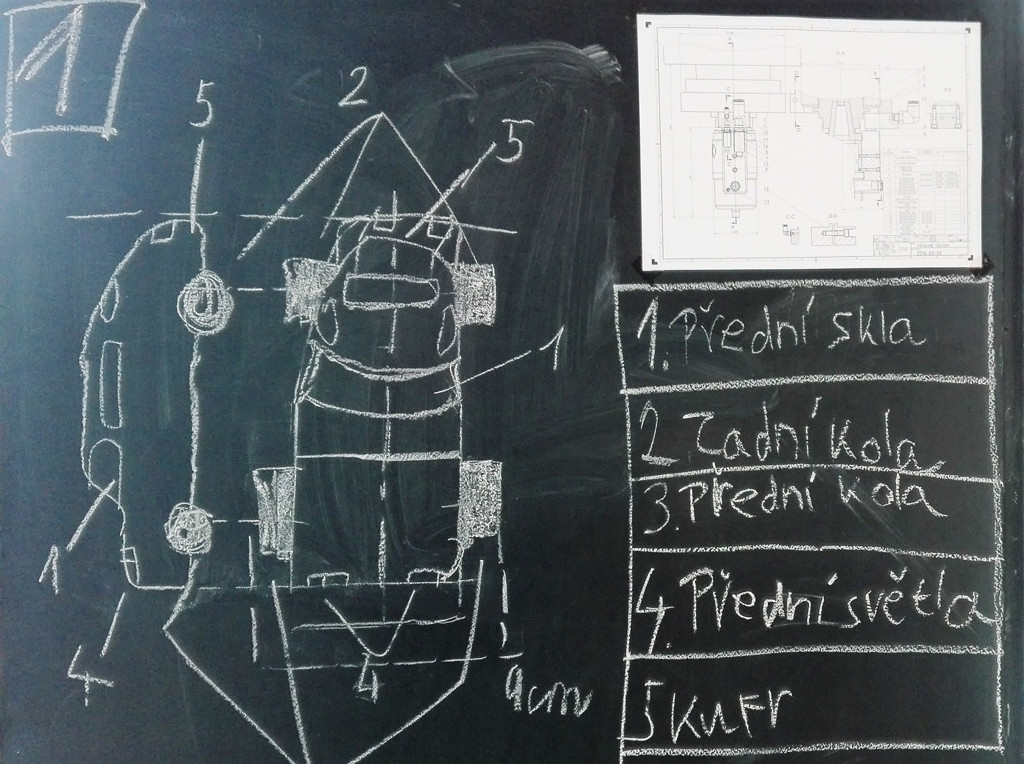 1
5
2
5
1
1
4
4
9cm
1. Přední skla
2. Zadní kola
3. Přední kola
4. Přední světla
5 Kufr